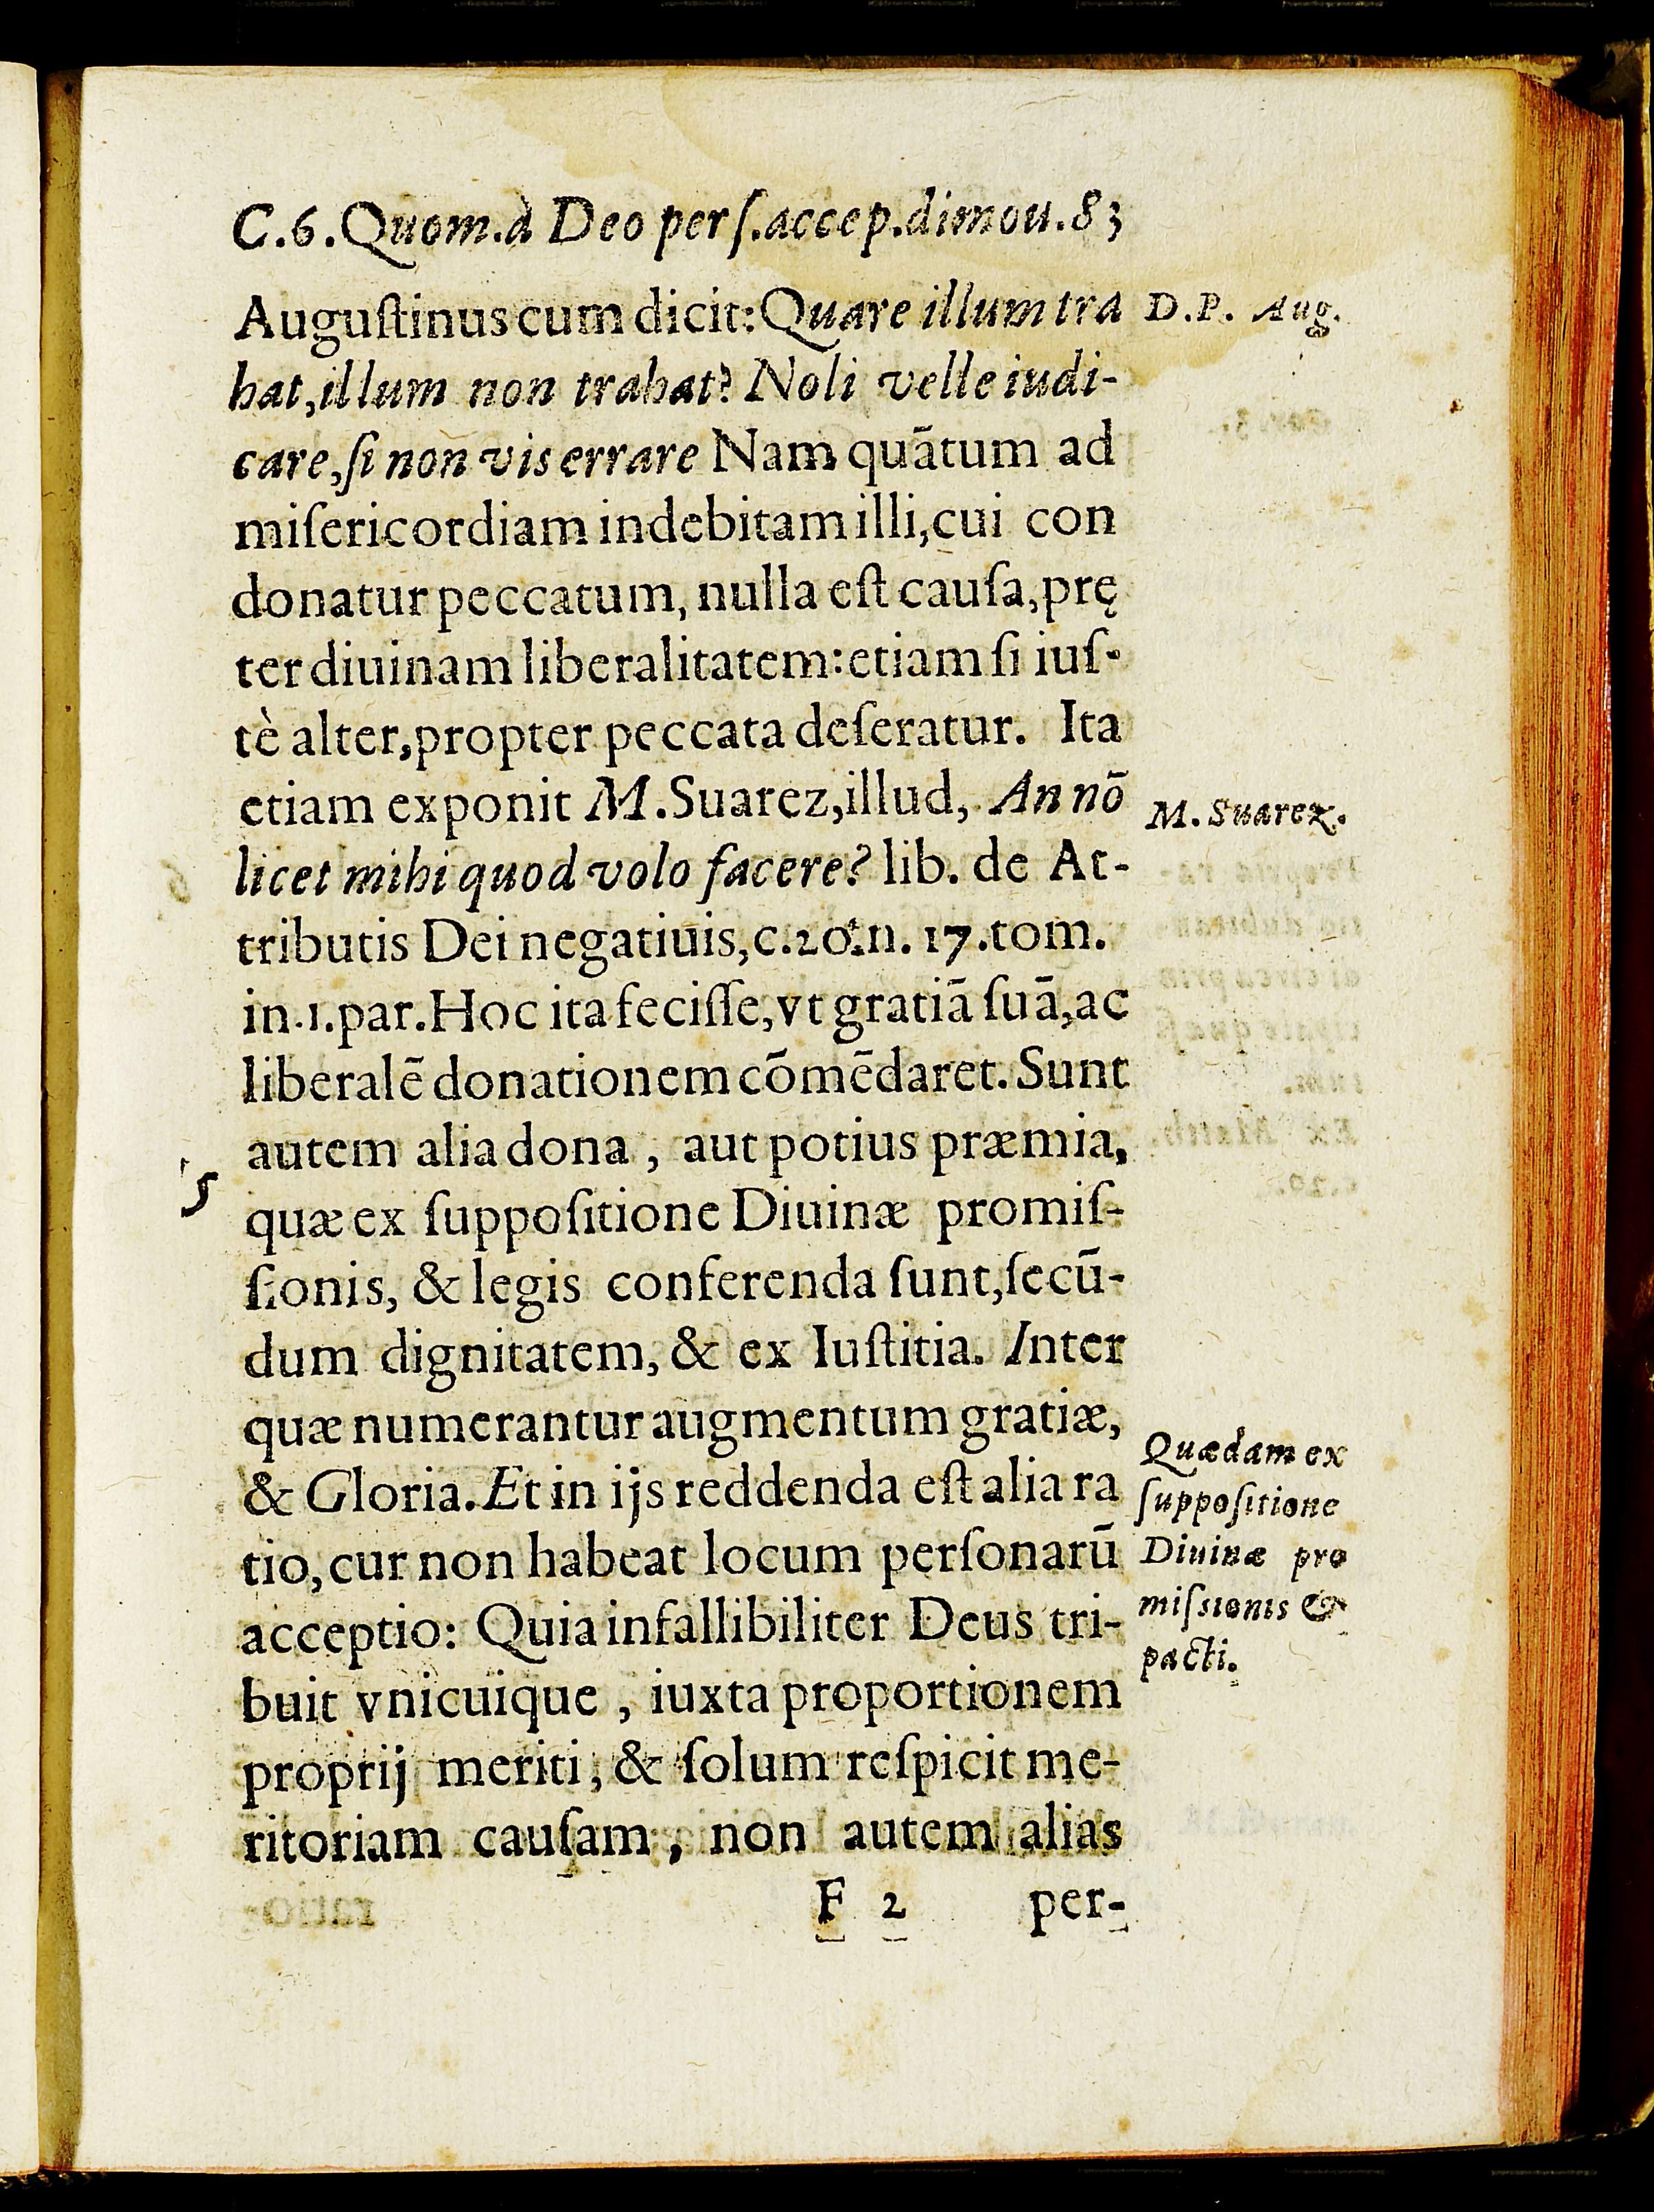 C.6.Quom.à Deo perſ.accep.dimou.83
Auguſtinus cum dicit: Quare illum tra
D.P. Aug.
hat, illum non trahat? Noli velle iudi-
care, ſi non vis errare Nam quãtum ad
miſericordiam indebitam illi, cui con
donatur peccatum, nulla eſt cauſa, prę
ter diuinam liberalitatem: etiam ſi iuſ-
tè alter, propter peccata deſeratur. Ita
etiam exponit M. Suarez, illud, An nõ
M. Suarez.
licet mihi quod volo facere? lib. de At-
tributis Dei negatiuis, c.20.n. 17. tom.
in.1.par. Hoc ita feciſſe, vt gratiã ſuã, ac
liberalẽ donationem cõmẽdaret. Sunt
autem alia dona, aut potius præmia,
5
quæ ex ſuppoſitione Diuinæ promiſ-
ſionis, & legis conferenda ſunt, ſecũ-
dum dignitatem, & ex Iuſtitia. Inter
quæ numerantur augmentum gratiæ,
& Gloria. Et in ijs reddenda eſt alia ra
tio, cur non habeat locum perſonarũ
acceptio: Quia infallibiliter Deus tri-
buit vnicuique, iuxta proportionem
proprij meriti, & ſolum reſpicit me-
ritoriam cauſam, non autem alias
Quædam ex
ſuppoſitione
Diuinæ pro
miſsionis &
pacti.
F 2 per-